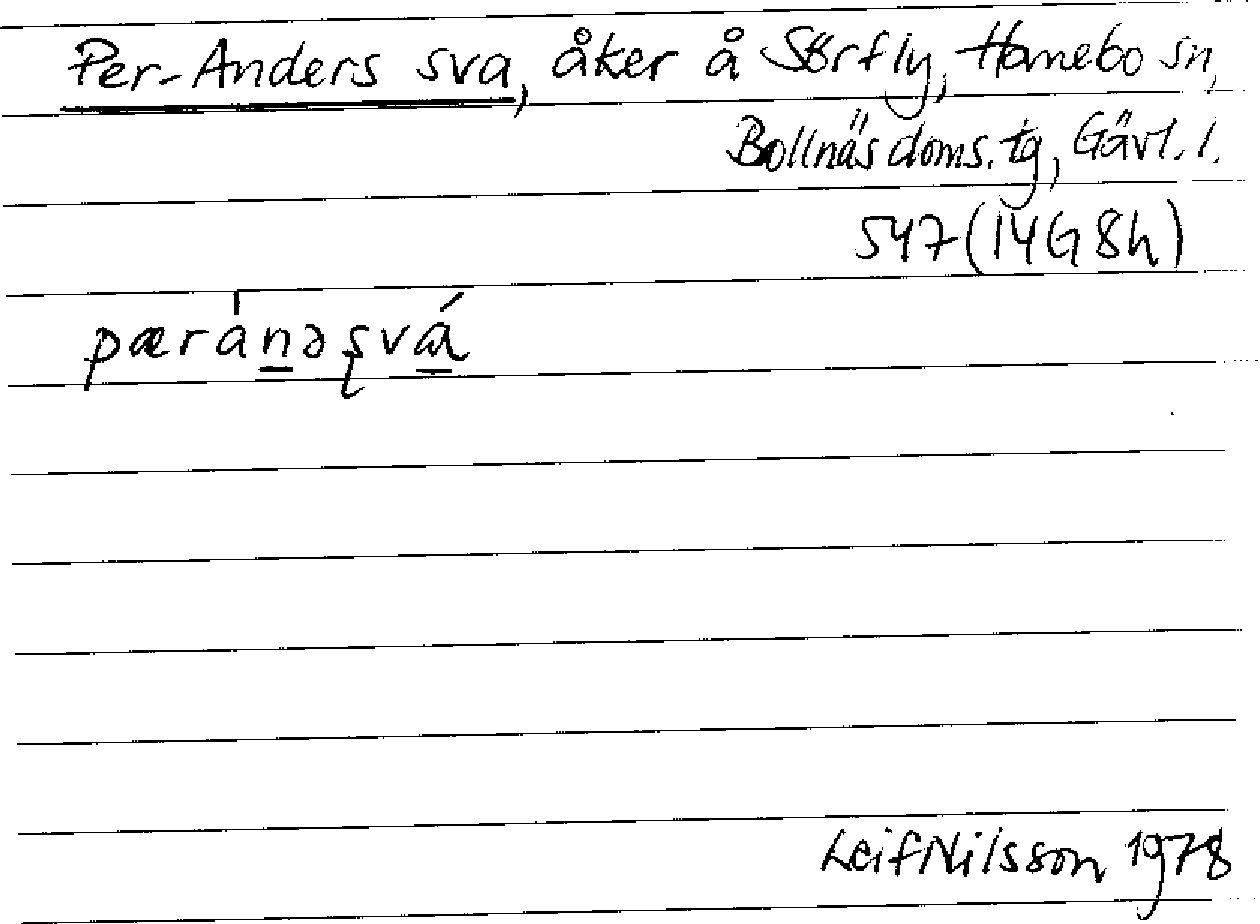 Per-Anders sva, åker å Sörfly, Hanebo sn,
Bollnäs doms. tg, Gävl. l.
547 (14G 8h)
pæránəʂvá
Leif Nilsson 1978